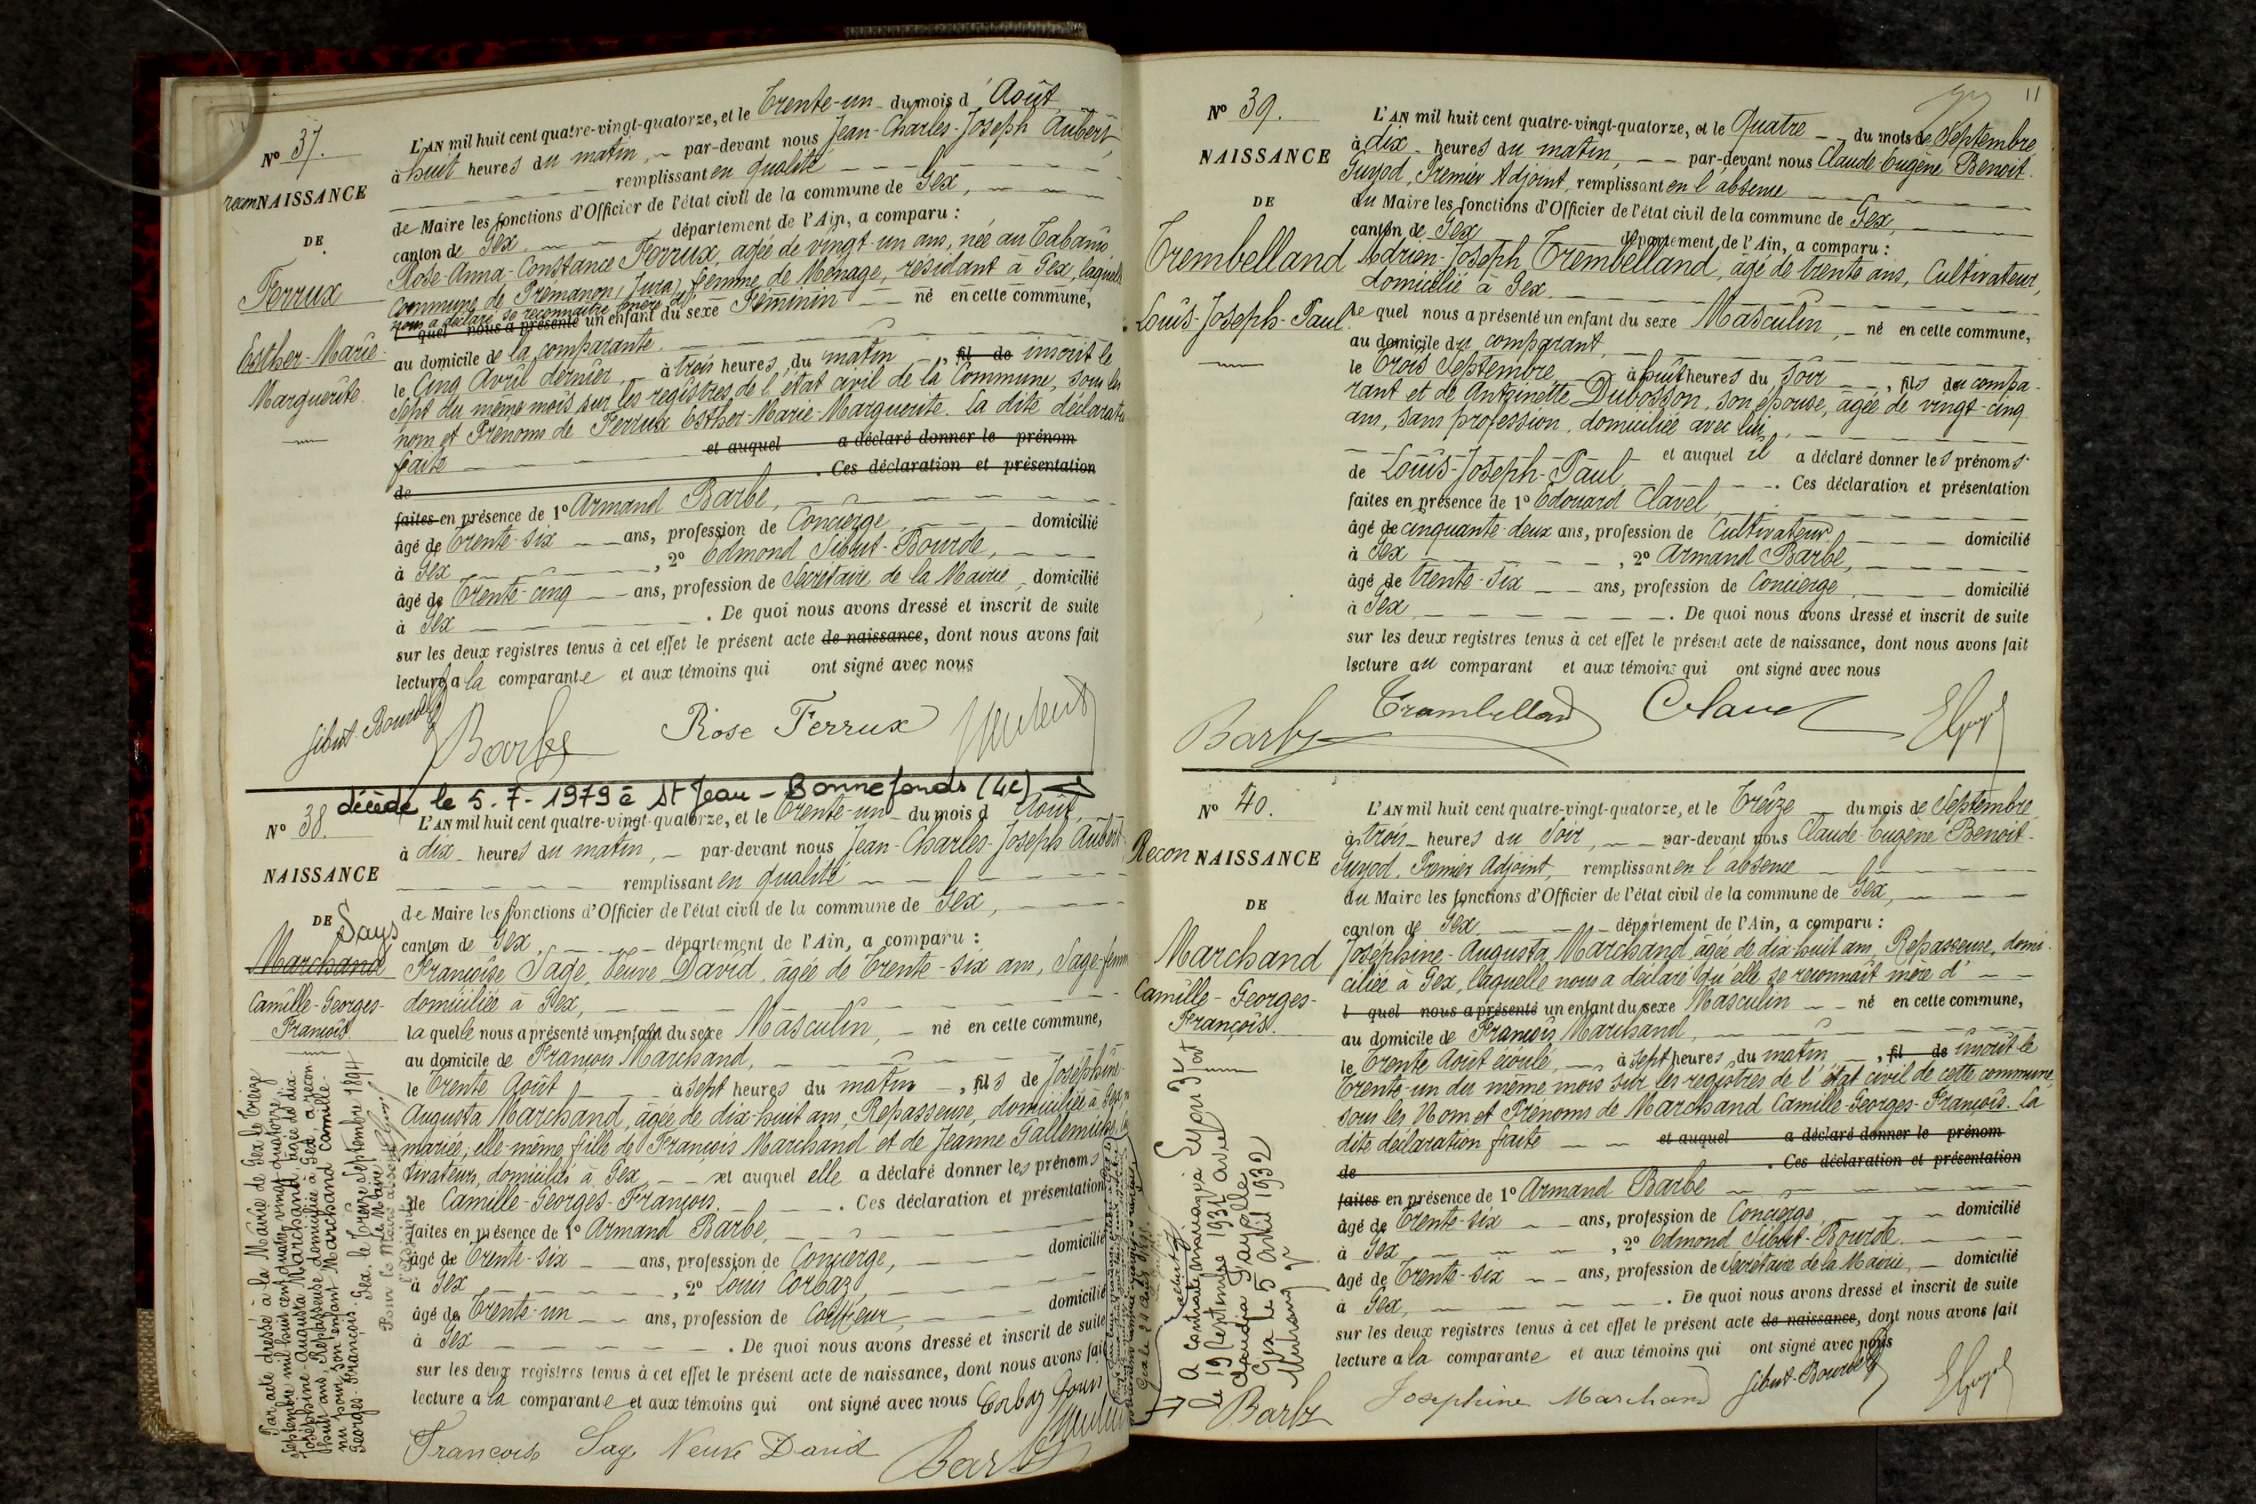 N° 37.
reconNAISSANCE
DE
Ferrux
Esther-Marie-
Marguerite.
L'AN mil huit cent quatre-vingt-quatorze, et le Trente-un du mois d'Août
à huit heures du matin, par-devant nous Jean-Charles-Joseph Aubert,
remplissant en qualité
de Maire les fonctions d'Officier de l'état civil de la commune de Gex,
canton de Gex département de l'Ain, a comparu :
Rose-Anna-Constance Ferrux, agée de vingt-un ans, née au Tabanis
Commune de Prémanon (Jura), femme de Ménage, résidant à Gex, laquelle
nous a déclaré se reconnaître mère d'
l quel nous a présenté un enfant du sexe Féminin né en cette commune,
au domicile de la comparante.
le Cinq Avril dernier, à trois heures du matin, fil de inscrit le
Sept du même mois sur les registres de l'état civil de la Commune, sous les
nom et Prénoms de Ferrux Esther-Marie-Marguerite. La dite déclaration
faite et auquel a déclaré donner le prénom
de . Ces déclaration et présentation
faites en présence de 1° Armand Barbe,
âgé de Trente-six ans, profession de Concierge, domicilié
à Gex, 2° Edmond Sibut-Bourde,
âgé de Trente-cinq ans, profession de Secrétaire de la Mairie, domicilié
à Gex . De quoi nous avons dressé et inscrit de suite
sur les deux registres tenus à cet effet le présent acte de naissance, dont nous avons fait
lecture a la comparante et aux témoins qui ont signé avec nous
Sibut-Bourde Barbe Rose Ferrux Aubert
décédé le 5-7-1979 à St Jean-Bonnefonds (4e)
N° 38.
NAISSANCE
DE
Says
Marchand
Camille-Georges-
François.
L'AN mil huit cent quatre-vingt-quatorze, et le Trente-un du mois d Août,
à dix heures du matin, par-devant nous Jean-Charles-Joseph Aubert
remplissant en qualité
de Maire les fonctions d'Officier de l'état civil de la commune de Gex,
canton de Gex département de l'Ain, a comparu :
Françoise Sage, Veuve David, âgée de Trente-six ans, Sage-femme
domiciliée à Gex,
laquelle nous a présenté un enfant du sexe Masculin, né en cette commune,
au domicile de François Marchand,
le Trente Août à sept heures du matin, fils de Joséphine-
Augusta Marchand, âgée de dix-huit ans, Repasseuse, domiciliée à Gex,
mariée, elle-même fille de François Marchand et de Jeanne Gallemiche,
tivateurs, domiciliés à Gex et auquel elle a déclaré donner les prénoms
de Camille-Georges-François. Ces déclaration et présentation
faites en présence de 1° Armand Barbe,
âgé de Trente-six ans, profession de Concierge, domicilié
à Gex, 2° Louis Corbaz,
âgé de Trente-un ans, profession de Coiffeur, domicilié
à Gex . De quoi nous avons dressé et inscrit de suite
sur les deux registres tenus à cet effet le présent acte de naissance, dont nous avons fait
lecture a la comparante et aux témoins qui ont signé avec nous Corbaz
Françoise Sage Veuve David Barbe
Par acte dressé à la Mairie de Gex le treize
Septembre mil huit cent quatre vingt quatorze,
Joséphine-Augusta Marchand, âgée de dix-
huit ans, Repasseuse domiciliée à Gex, a recon
nu pour son enfant Marchand Camille-
Georges-François. Gex, le Treize Septembre 1894
Pour le Maire absent
N° 39.
NAISSANCE
DE
Trembelland
Louis-Joseph-Paul.
11
L'AN mil huit cent quatre-vingt-quatorze, et le Quatre du mois de Septembre
à dix heures du matin, par-devant nous Claude-Eugène Benoit-
Guyod, Premier Adjoint, remplissant en l'absence
du Maire les fonctions d'Officier de l'état civil de la commune de Gex,
canton de Gex département de l'Ain, a comparu :
Adrien-Joseph Trembelland, âgé de trente ans, Cultivateur,
domicilié à Gex.
le quel nous a présenté un enfant du sexe Masculin, né en cette commune,
au domicile du comparant,
le Trois Septembre à huit heures du soir, fils du compa-
rant et de Antoinette Dubosson, son épouse, âgée de vingt-cinq
ans, sans profession, domiciliée avec lui,
et auquel il a déclaré donner les prénoms
de Louis-Joseph-Paul. Ces déclaration et présentation
faites en présence de 1° Edouard Clavel,
âgé de cinquante-deux ans, profession de Cultivateur domicilié
à Gex, 2° Armand Barbe,
âgé de trente-six ans, profession de Concierge domicilié
à Gex . De quoi nous avons dressé et inscrit de suite
sur les deux registres tenus à cet effet le présent acte de naissance, dont nous avons fait
lecture au comparant et aux témoins qui ont signé avec nous
Barbe Trambelland Clavel
N° 40.
ReconNAISSANCE
DE
Marchand
Camille-Georges-
François.
L'AN mil huit cent quatre-vingt-quatorze, et le Treize du mois de Septembre
à trois heures du soir, par-devant nous Claude-Eugène Benoit-
Guyod, Premier Adjoint, remplissant en l'absence
du Maire les fonctions d'Officier de l'état civil de la commune de Gex,
canton de Gex département de l'Ain, a comparu :
Joséphine-Augusta Marchand, âgée de dix-huit ans, Repasseuse, domi-
ciliée à Gex, laquelle nous a déclaré qu'elle se reconnaît mère d'
l quel nous a présenté un enfant du sexe Masculin né en cette commune,
au domicile de François Marchand,
le Trente Août écoulé, à sept heures du matin, fil de inscrit le
Trente-un du même mois sur les registres de l'état civil de cette commune
sous les Nom et Prénoms de Marchand Camille-Georges-François. La
dite déclaration faite et auquel a déclaré donner le prénom
de . Ces déclaration et présentation
faites en présence de 1° Armand Barbe
âgé de Trente-six ans, profession de Concierge domicilié
à Gex, 2° Edmond Sibut-Bourde
âgé de Trente-six ans, profession de Secrétaire de la Mairie, domicilié
à Gex, . De quoi nous avons dressé et inscrit de suite
sur les deux registres tenus à cet effet le présent acte de naissance, dont nous avons fait
lecture a la comparante et aux témoins qui ont signé avec nous
Barbe Josephine Marchand Sibut-Bourde
A contracté mariage à Lyon 3e arrt
le 19 Septembre 1931 avec
Claudia Gayelle
Gex le 5 avril 1932